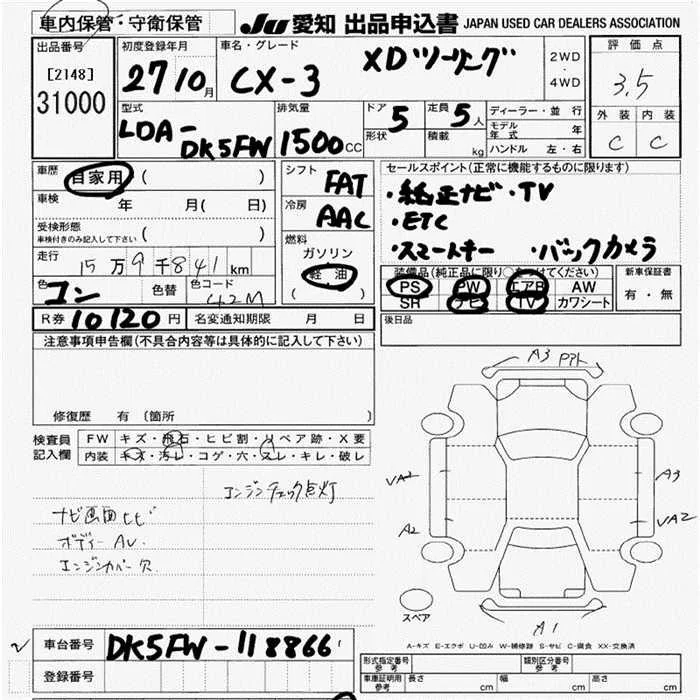 車内保管・守衛保管 JU 愛知 出品申込書 JAPAN USED CAR DEALERS ASSOCIATION
出品番号 初度登録年月 車名・グレード 評価点
[2148] 27 10月 CX-3 XDツーリング 2WD・4WD 3.5
31000 外装 内装
型式 排気量 ドア 5 定員 5人 ディーラー・並行
LDA- 形状 積載 kg モデル年式 年 C C
DK5FW 1500cc ハンドル 左・右
車歴 自家用 ( ) シフト FAT セールスポイント(正常に機能するものに限ります)
車検 年 月( 日) 冷房 AAC ・純正ナビ・TV
受検形態 ( ) ・ETC
車検付きのみ記入して下さい 燃料 ・スマートキー ・バックカメラ
走行 15万9千841km ガソリン
軽油
( )
装備品(純正品に限り○をつけてください) 新車保証書
色 コン 色替 色コード 42M PS PW エアB AW 有・無
SR ナビ TV カワシート
R券 10120円 名変通知期限 月 日 後日品
注意事項申告欄(不具合内容等は具体的に記入して下さい)
修復歴 有 〔箇所 〕
検査員記入欄 FW キズ・飛石・ヒビ割・リペア跡・X要
内装 キズ・汚レ・コゲ・穴・スレ・キレ・破レ
エンジンチェック点灯
ナビ画面ヒビ
ボディーAU.
エンジンカバー欠
A3
VA3 A3
A2 VA2
スペア A1
A-キズ E-エクボ U-凹み W-補修跡 S-サビ C-腐食 XX-交換済
車台番号 DK5FW-118866
登録番号
形式指定番号 参考 類別区分番号 参考
車庫証明用 参考 長さ cm 幅 cm 高さ cm